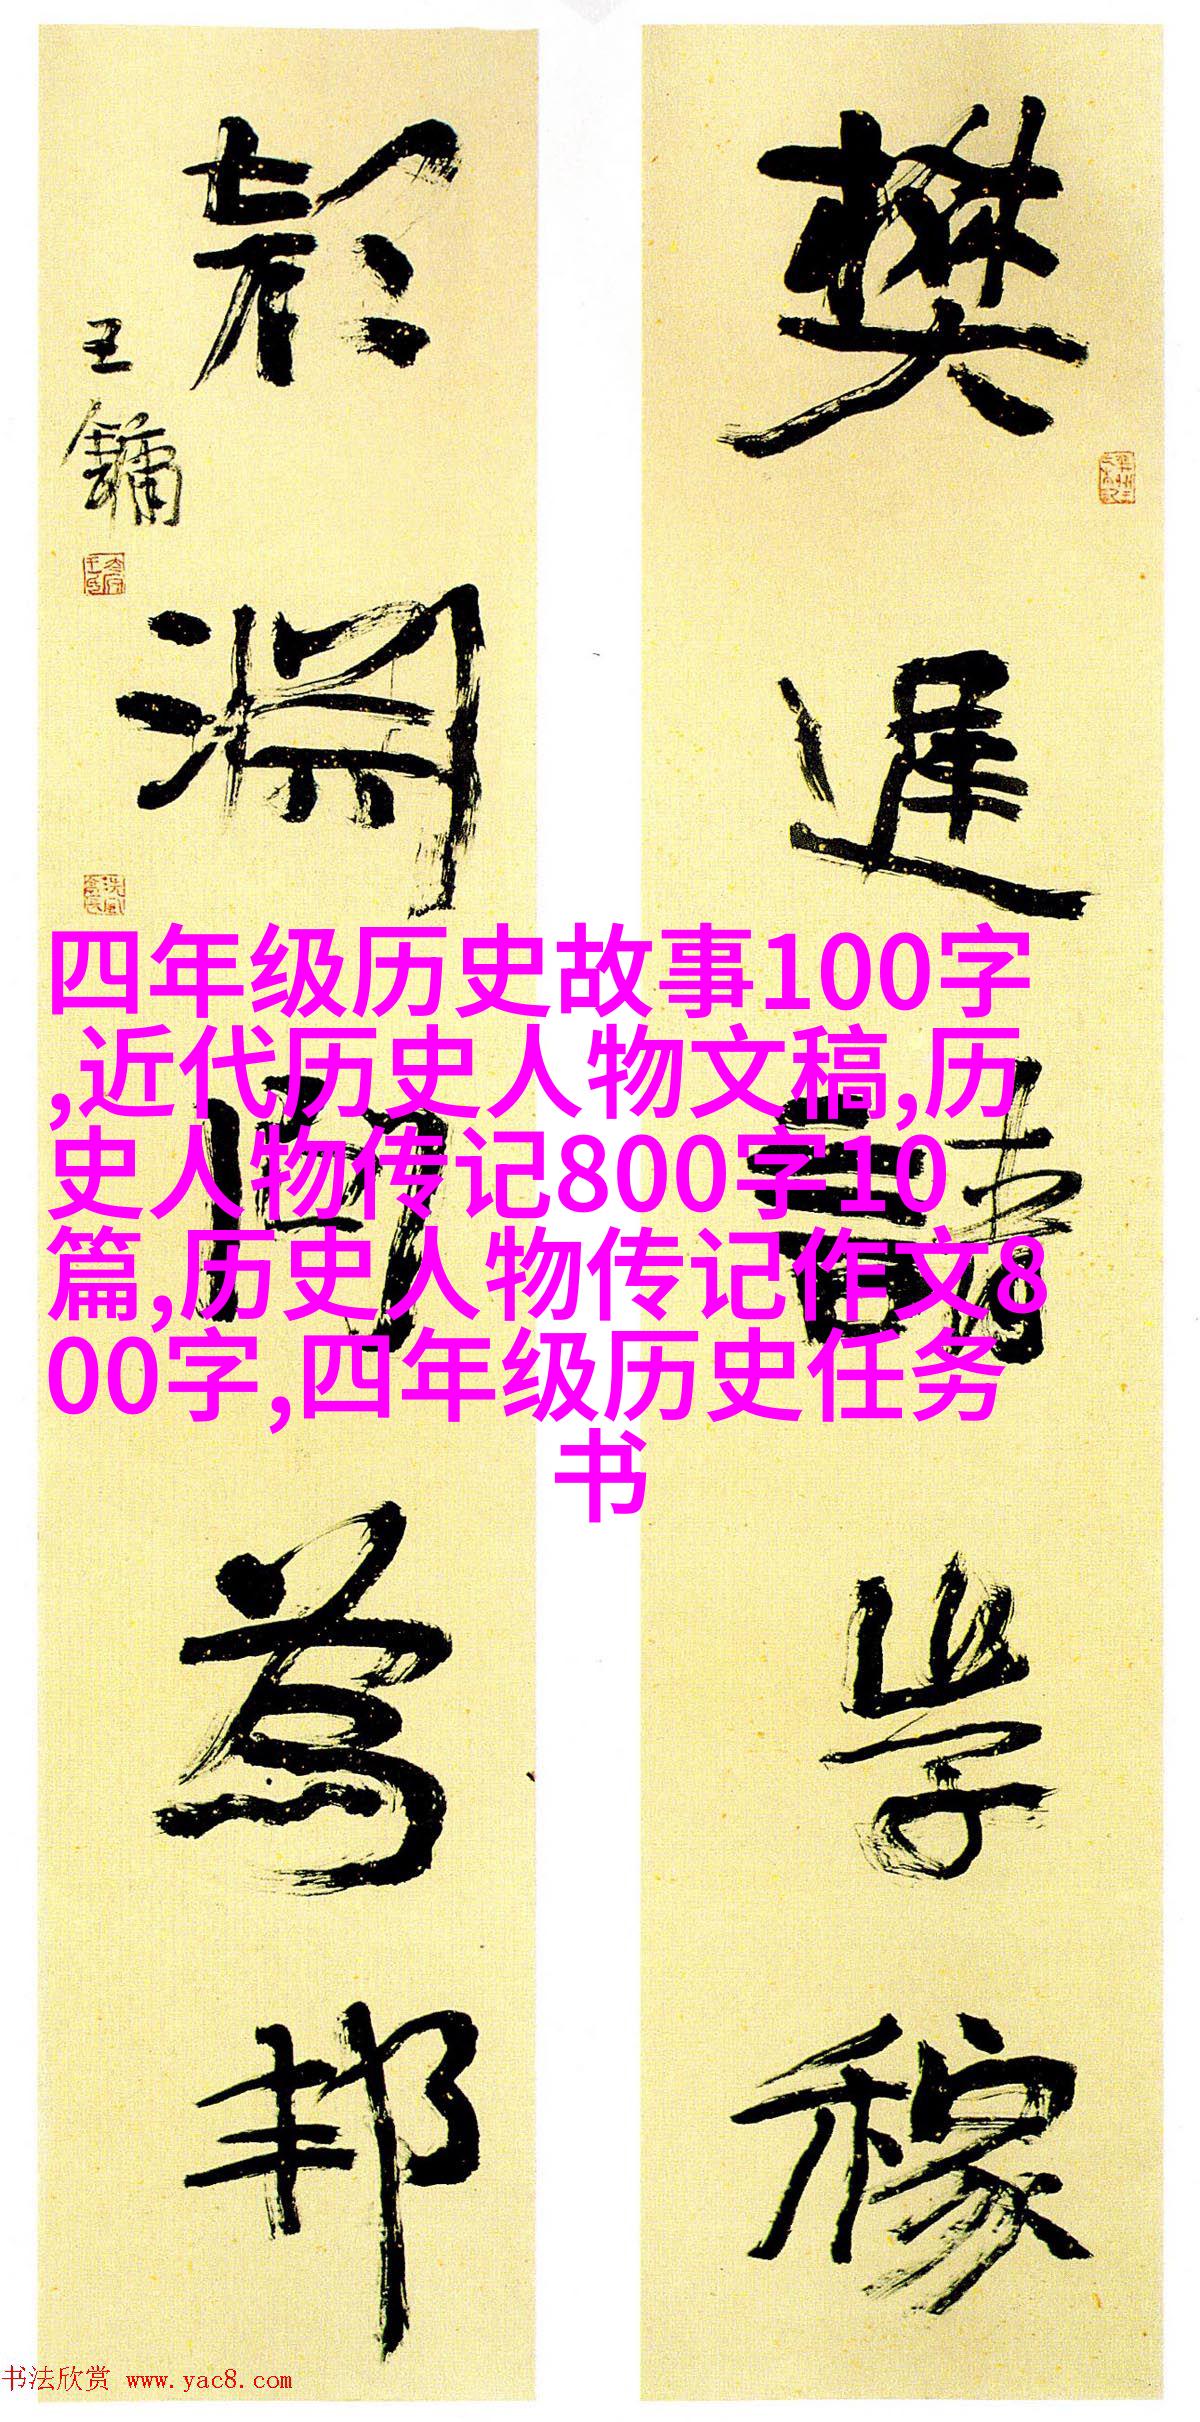 樊遲請學稼
顏淵問為邦
王鏞
四年级历史故事100字
,近代历史人物文稿,历
史人物传记800字10
篇,历史人物传记作文8
00字,四年级历史任务
书
书法欣赏 www.yac8.com